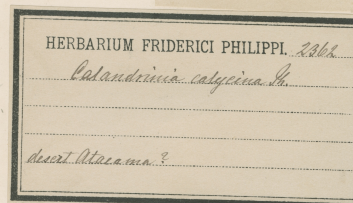 HERBARIUM FRIDERICI PHILIPPI. 2362
Calandrinia calycina Ph.
desert Atacama?